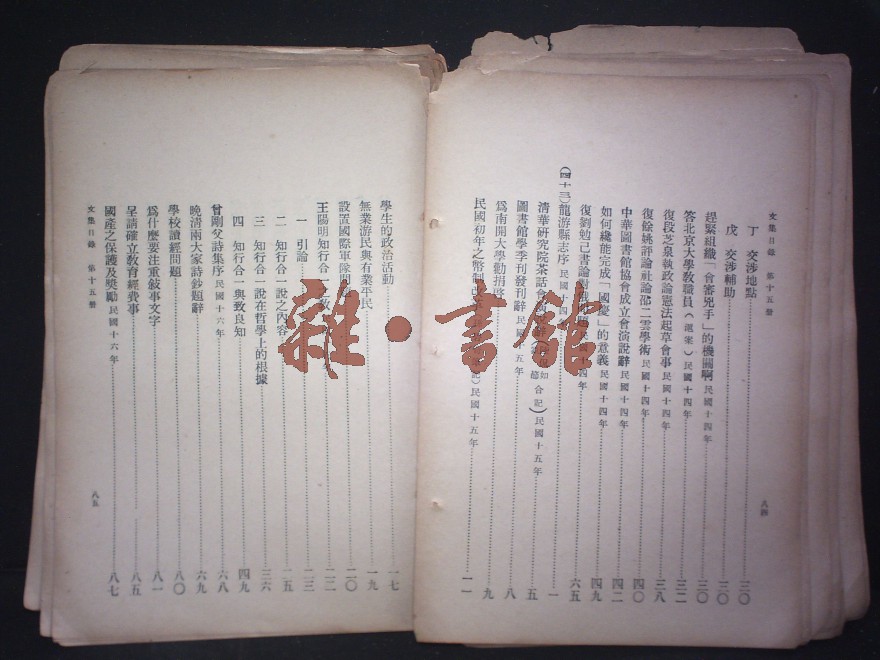 文集目錄　第十五册
丁　交涉地點……三〇
戊　交涉輔助……三〇
趕緊組織「會審兇手」的機關啊 民國十四年……三〇
答北京大學教職員 民國十四年……三二
復段芝泉執政論憲法起草會事 民國十四年……三八
復餘姚評論社論邵二雲學術 民國十四年……四〇
中華圖書館協會成立會演說辭 民國十四年……四二
如何纔能完成「國慶」的意義 民國十四年……四九
復劉勉己書論對俄問題 民國十四年……六五
(四十三)龍游縣志序 民國十四……一
清華研究院茶話會 合記)民國十五年……五
圖書館學季刊發刊辭 民國十五年……八
爲南開大學勸捐啓……九
民國初年之幣制 民國十五年……一一
八四
學生的政治活動……一七
無業游民與有業平民……一九
設置國際軍隊問……二〇
王陽明知行合一……二二
一　引論……二三
二　知行合一說之內容……二五
三　知行合一說在哲學上的根據……三六
四　知行合一與致良知……四九
曾剛父詩集序 民國十六年……六八
晚清兩大家詩鈔題辭……六九
學校讀經問題……八〇
爲什麼要注重敍事文字……八一
呈請確立教育經費事……八五
國產之保護及奬勵 民國十六年……八七
文集目錄　第十五册
八五
雜·書館